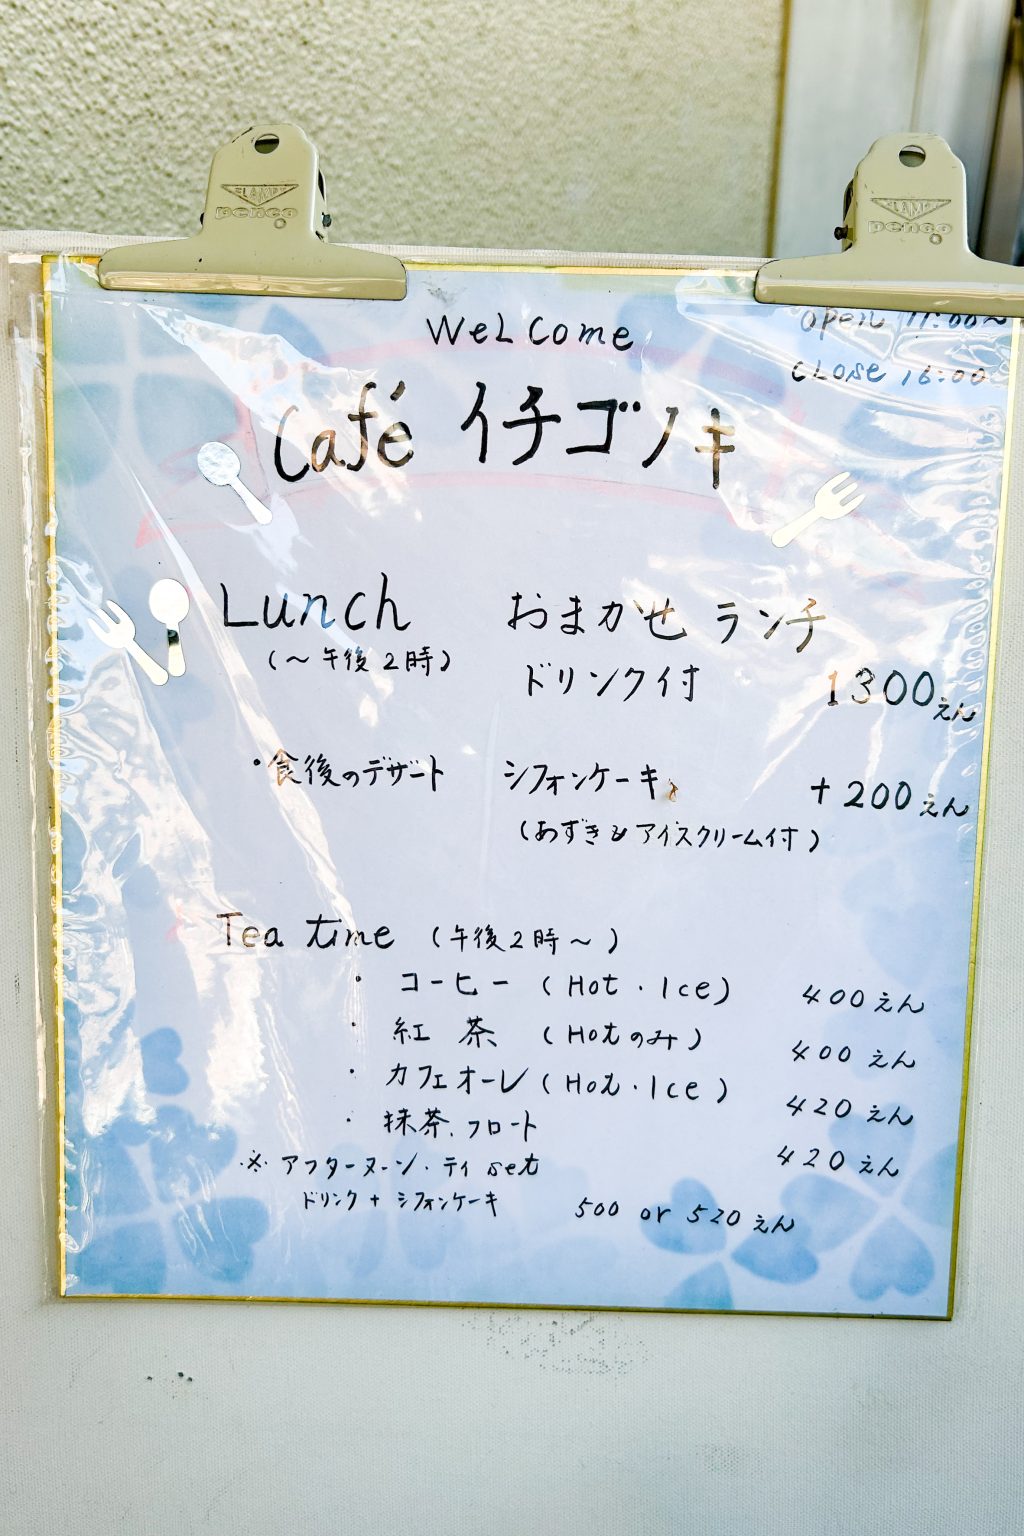 CLAMPY
penco
CLAMPY
penco
Open 11:00~
CLOSE 16:00
WeLCome
Café イチゴノキ
Lunch おまかせ ランチ
(〜午後2時) ドリンク付 1300えん
・食後のデザート シフォンケーキ +200えん
(あずき アイスクリーム付)
Tea time (午後2時〜)
・コーヒー (Hot・Ice) 400えん
・紅茶 (Hotのみ) 400えん
・カフェオーレ (Hot・Ice) 420えん
・抹茶フロート 420えん
※アフターヌーン・ティ set
ドリンク + シフォンケーキ 500 or 520えん